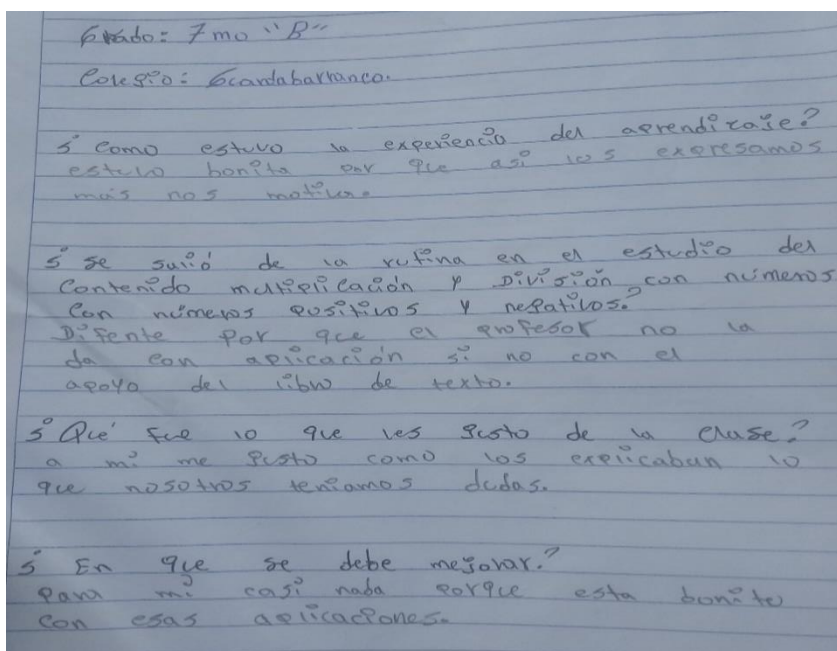 Grado: 7mo "B"
Colegio: Gcardabarranco.
¿Como estuvo la experiencio del aprendizaje?
estuvo bonita por que así los expresamos
más nos motiva.
¿Se salió de la rutina en el estudio del
Contenido multiplicación y División con números
Con números positivos y negativos?
Difente por que el profesor no la
da con aplicación si no con el
apoyo del libro de texto.
¿Qué fue lo que les gusto de la clase?
a mí me gusto como los explicaban lo
que nosotros teniamos dudas.
¿En que se debe mejorar?
Para mí casi nada porque esta bonito
con esas aplicaciones.